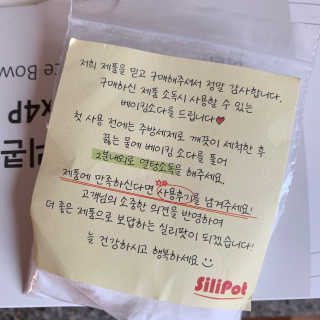 저희 제품을 믿고 구매해주셔서 정말 감사합니다.
구매하신 제품 소독시 사용할 수 있는
베이킹소다를 드립니다♥
첫 사용 전에는 주방세제로 깨끗이 세척한 후
끓는 물에 베이킹 소다를 풀어
2분내외로 열탕소독을 해주세요.
제품에 만족하신다면 사용후기를 남겨주세요!
고객님의 소중한 의견을 반영하여
더 좋은 제품으로 보답하는 실리팟이 되겠습니다!
늘 건강하시고 행복하세요
SiliPot
ce Bow
x4P